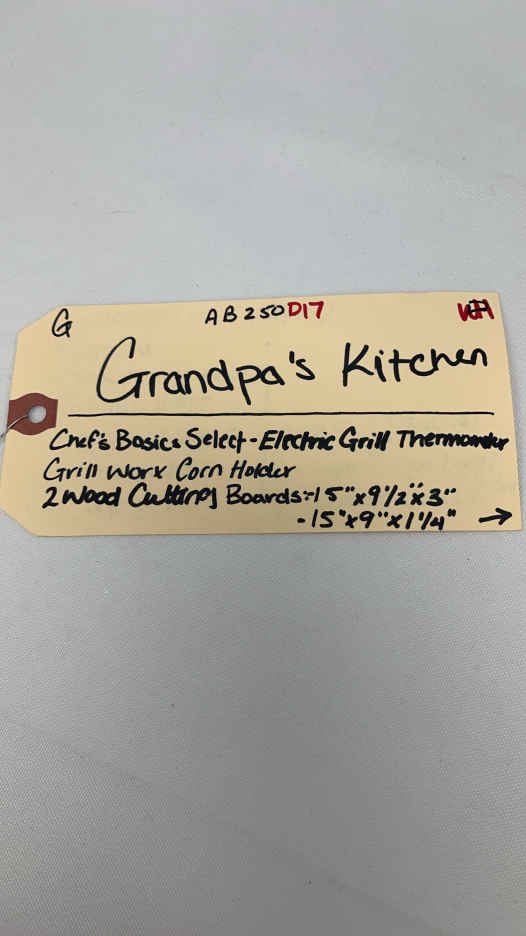 G AB250D17
Grandpa's Kitchen
Chef's Basics Select - Electric Grill Thermometer
Grill Worx Corn Holder
2 Wood Cutting Boards: - 15" x 9 1/2" x 3"
- 15" x 9" x 1 1/4" →